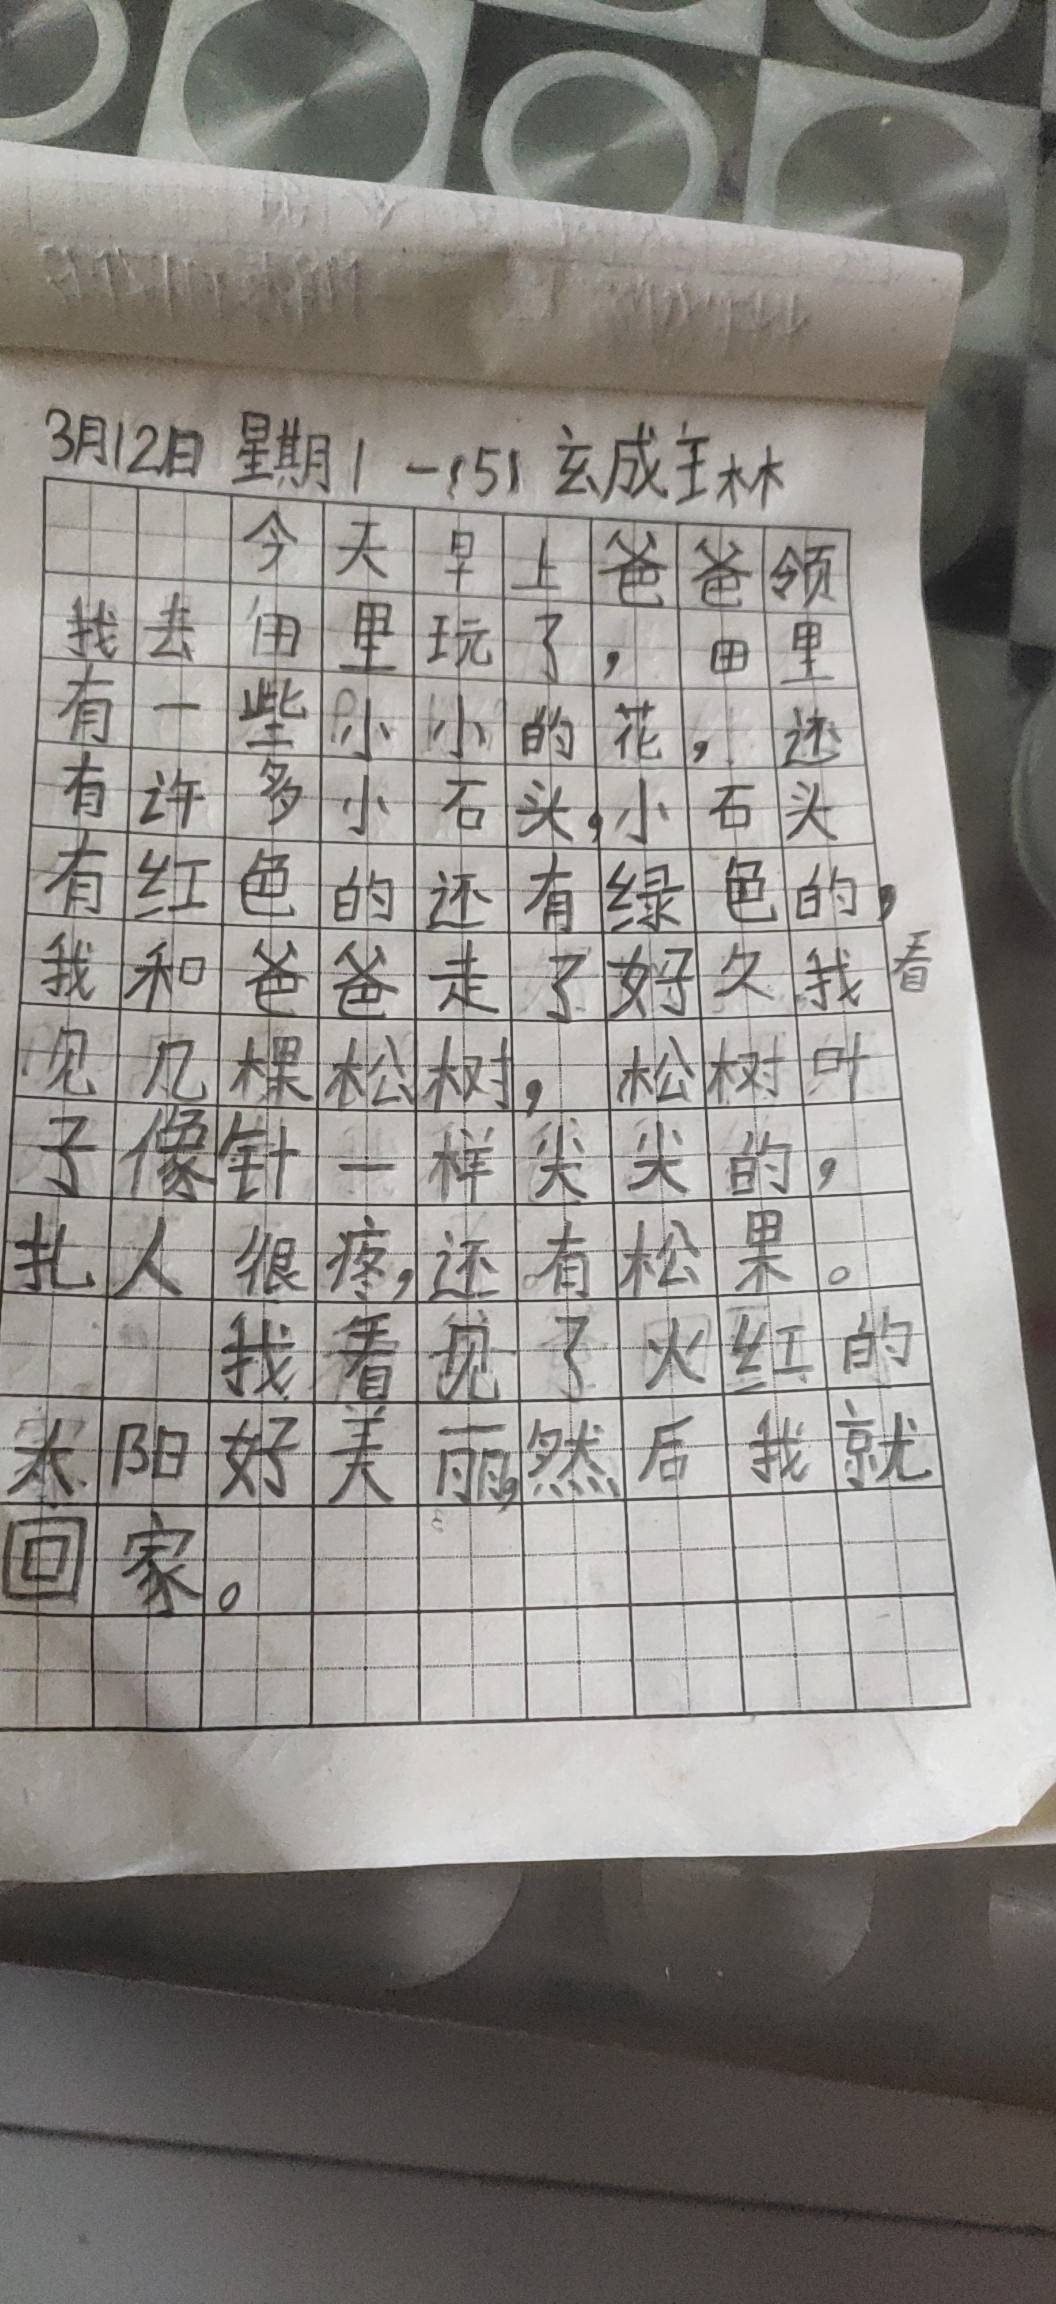 3月12日 星期1 一(5) 玄成玤林
今天早上爸爸领
我去田里玩了，田里
有一些小小的花，还
有许多小石头，小石头
有红色的还有绿色的，
我和爸爸走了好久我看
见几棵松树，松树叶
子像针一样尖尖的，
扎人很疼，还有松果。
我看见了火红的
太阳好美丽，然后我就
回家。